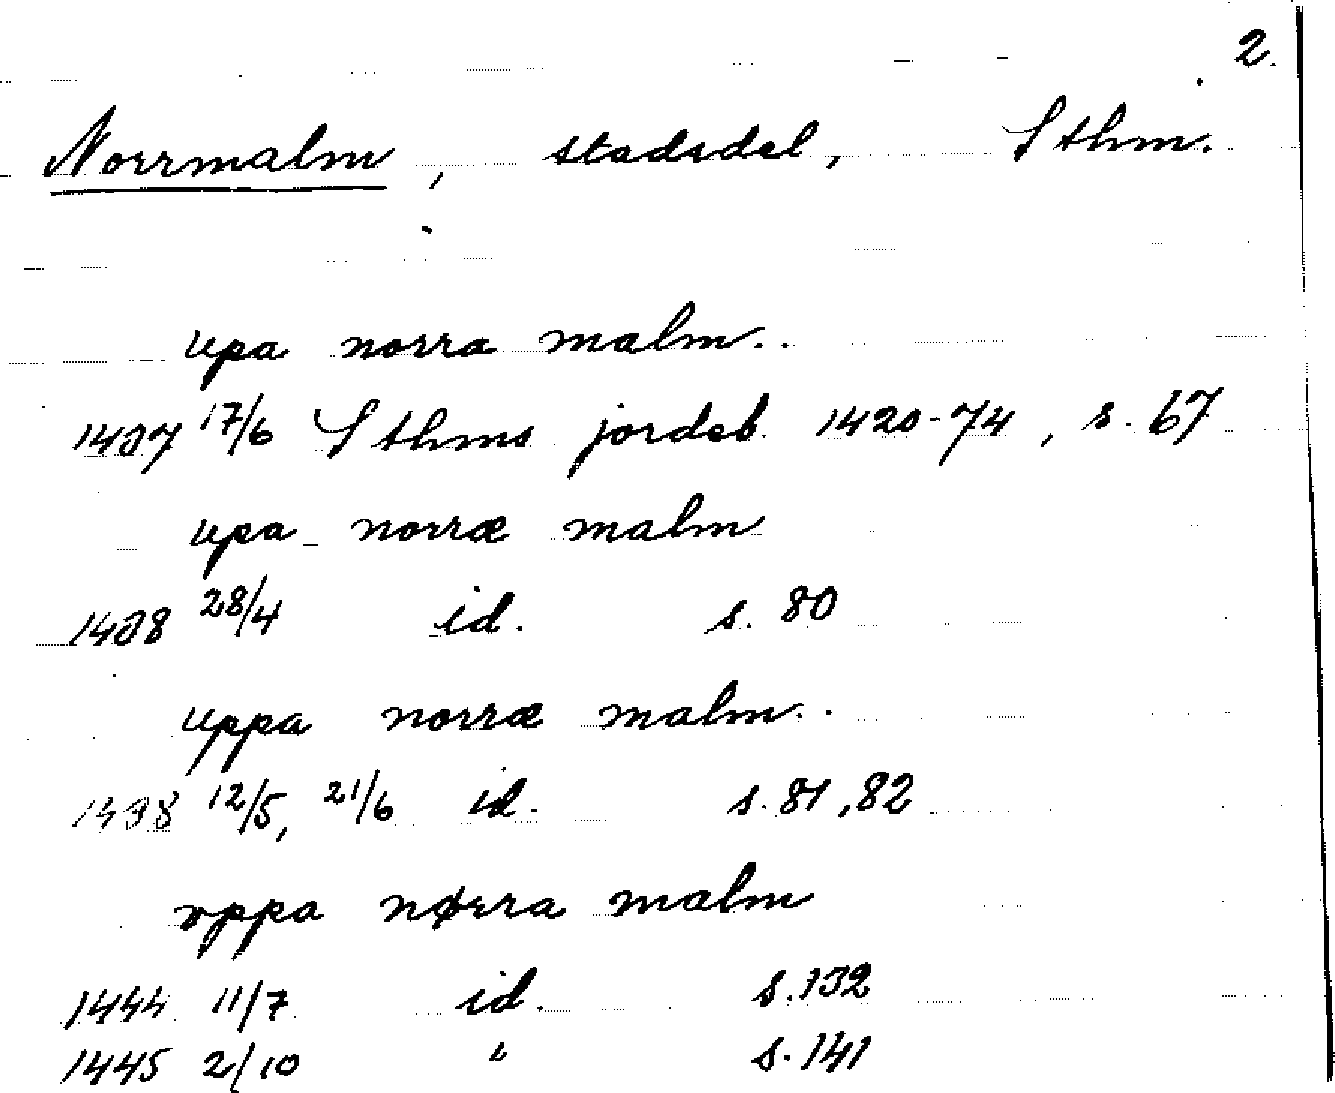 2.
Norrmalm, stadsdel, Sthm.
upa norra malm..
1437 17/6 Sthms jordeb. 1420-74, s. 67
upa norræ malm
1438 28/4 id. s. 80
uppa norræ malm..
1438 12/5, 21/6 id. s. 81, 82
vppa nørra malm
1444 11/7 id. s. 132
1445 2/10 " s. 141